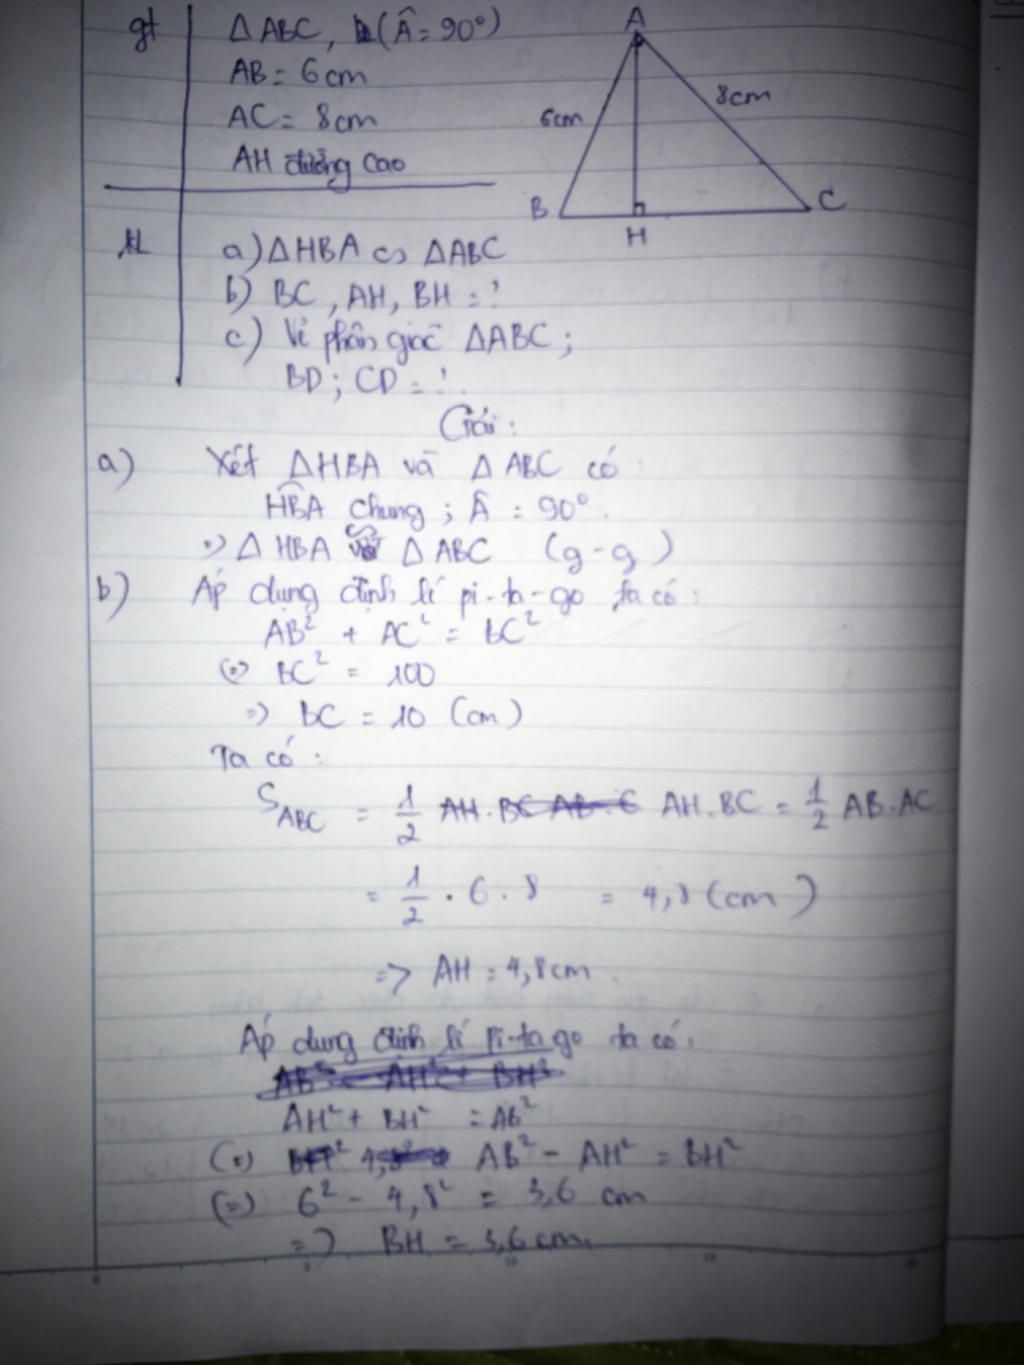 gt
ΔABC, (Â = 90°)
AB = 6cm
AC = 8cm
AH đường cao
A
6cm
8cm
B
H
C
KL
a) ΔHBA ∽ ΔABC
b) BC, AH, BH = ?
c) Vẽ phân giác ΔABC;
BD; CD = ?
Giải:
a) Xét ΔHBA và ΔABC có:
HBA chung; Â = 90°.
=> ΔHBA ∽ ΔABC (g-g)
b) Áp dụng định lí pi-ta-go ta có:
AB² + AC² = BC²
(=) BC² = 100
=> BC = 10 (cm)
Ta có:
S_ABC = 1/2 AH.BC = 1/2 AB.AC
= 1/2 . 6 . 8 = 4,8 (cm)
=> AH = 4,8cm.
Áp dung định lí Pi-ta go ta có:
AB² = AH² + BH²
AH² + BH² = AB²
(=) AB² - AH² = BH²
(=) 6² - 4,8² = 3,6 cm
=> BH = 3,6cm.
0 5 10 15 20